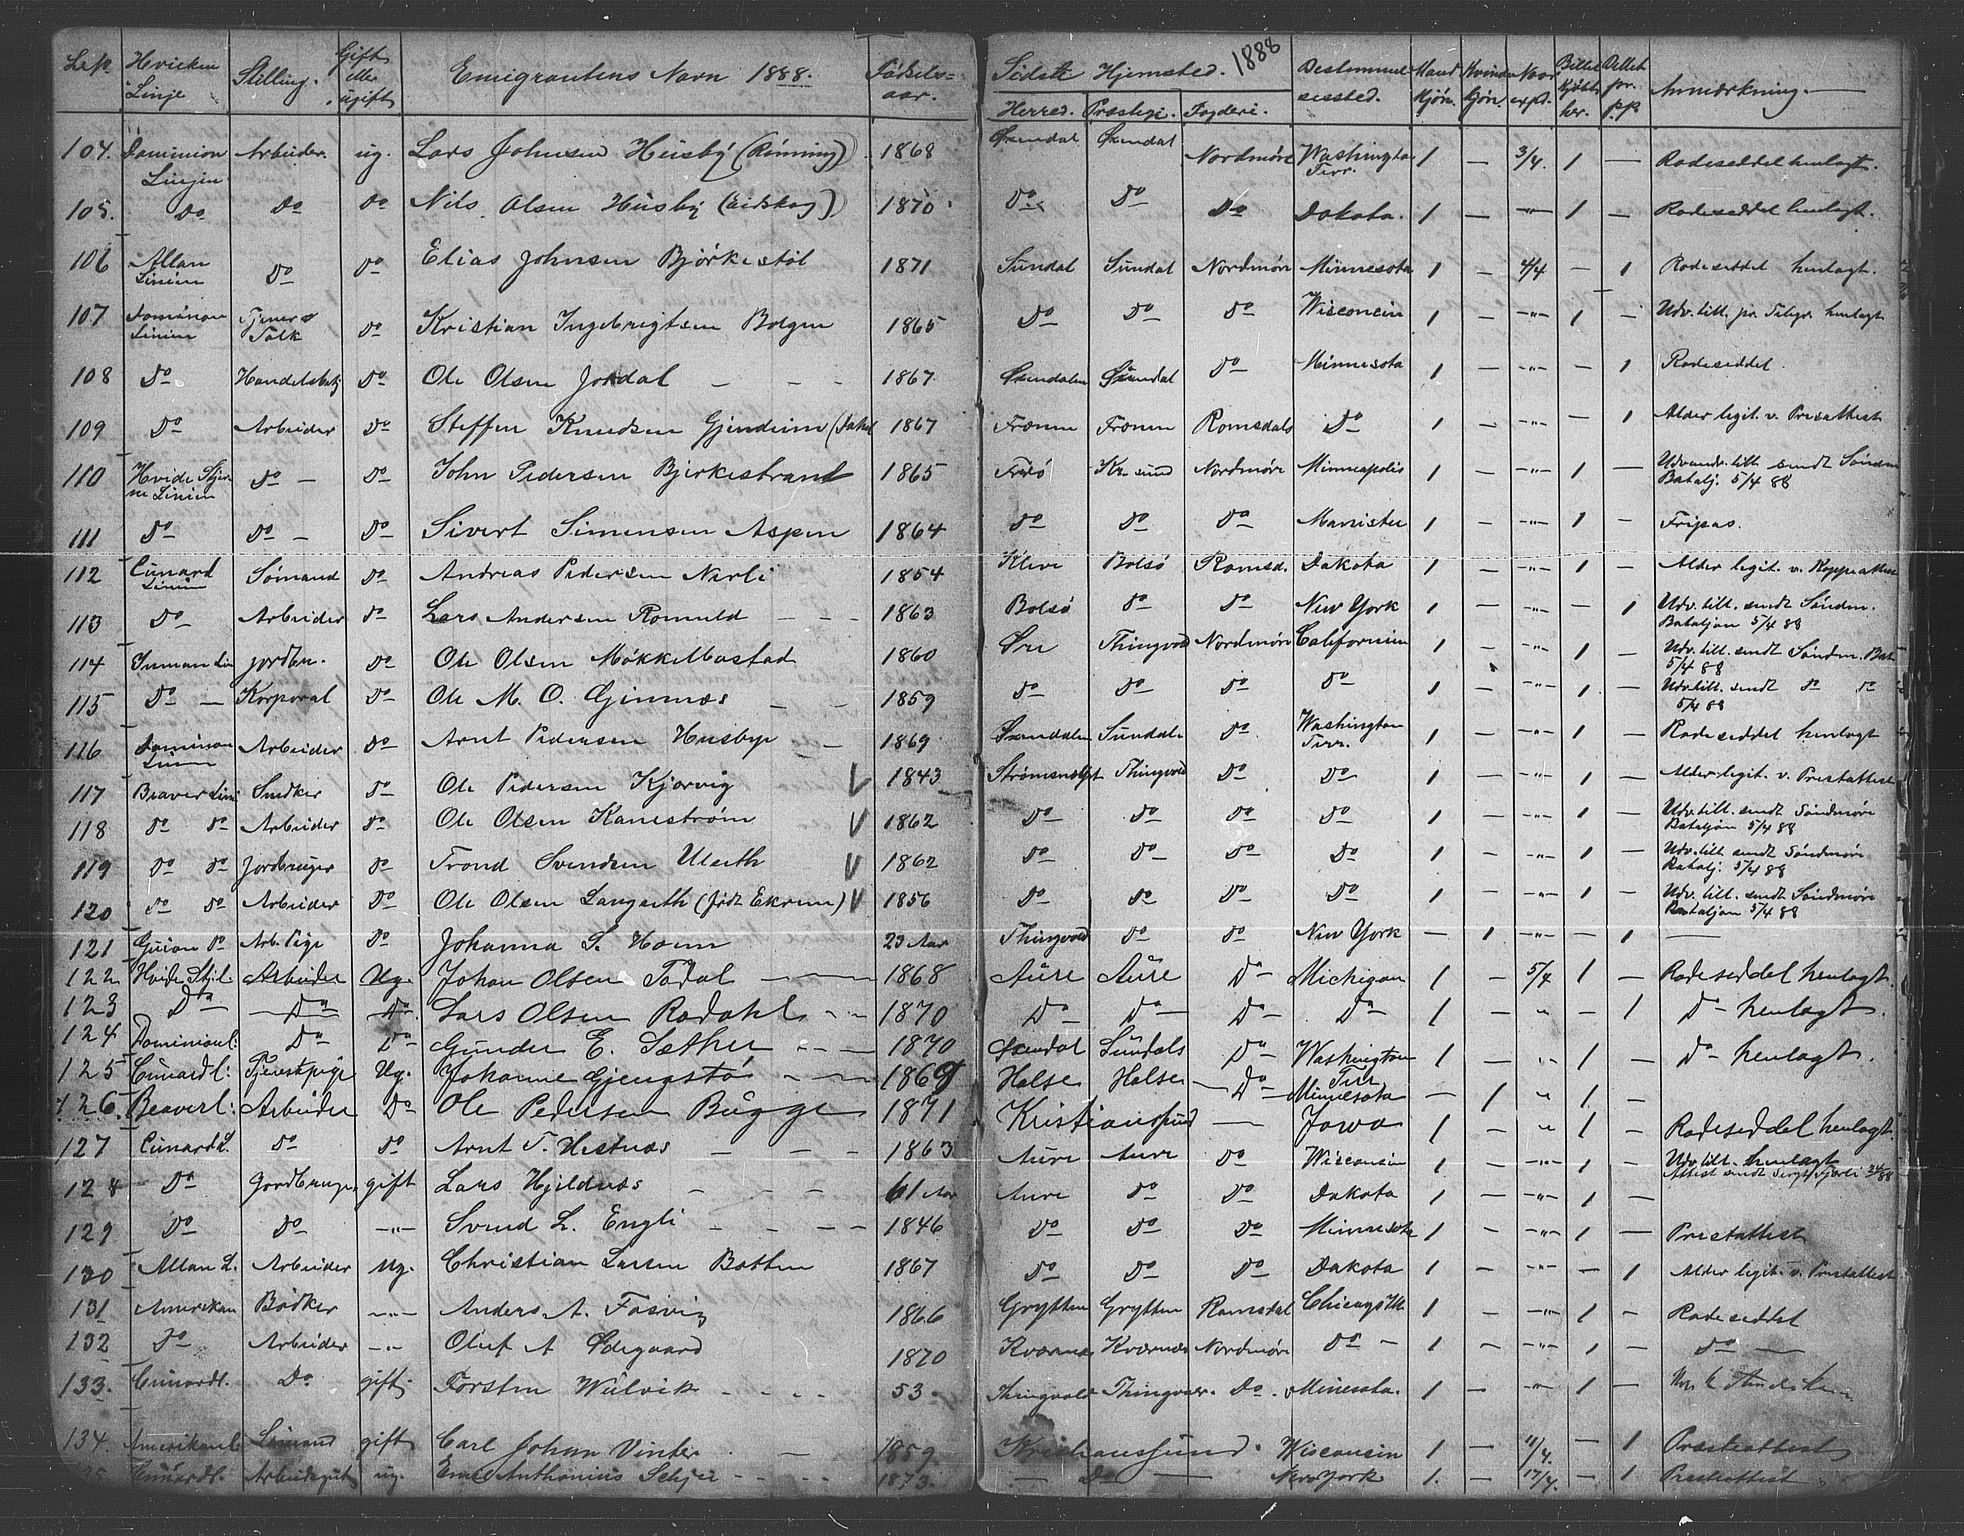 Hvicken Linje Stilling. Gift eller ugift Emigrantens Navn 1888. Fødsels-aar. Sidste Hjemsted. 1888 Herred. Præstegj. Fogderi. Bestemmelsessted. Mand kjøn. Kvinde kjøn. Anmærkning.
104. Dominion Linjen Arbeider. ug. Lars Johnsen Husby (Rønning) 1868 Øxendal Øxendal Nordmøre Washington Terr. 1 — 3/4. 1 — Rodeseddel henlagt.
105. Do Do Do Nils Olsen Husby (Eidskog) 1870 Do Do Do Dakota. 1 — -"- 1 — Rodeseddel henlagt.
106 Allan Linien Do Do Elias Johnsen Bjørkestøl 1871 Sundal Sundal Nordmøre Minnesota 1 - 4/4 — 1 Rodeseddel henlagt.
107 Dominion Linien Tjener Folk Do Kristian Ingebrigtsen Bolgen 1865 Do Do Do Wisconsin 1 — -"- 1 — Udv. till. pr. Telegr. henlagt
108 Do Handelsbetj Do Ole Olsen Jordal — - - 1867 Øxendalen Øxendal Do Minnesota 1 — -"- — 1 Rodeseddel.
109 Do Arbeider Do Steffen Knudsen Gjendem 1867 Frænen Frænen Romsdals Do 1 — -"- — 1 Alder legit. v. Prestattest
110 Hvide Stjerne Linien Do — Do John Pedersen Bjerkestrand 1865 Frei Kr. sund Nordmøre Minneapolis 1 — -"- 1 — Udvandr. till. sendt Søndm Batalj. 5/4 88
111 Do Do — Do Sivert Simensen Aspen 1864 Do Do Do Manistee 1 — -"- 1 - Fripas.
112 Cunard Linien Sømand Do Andreas Pedersen Nerli 1854 Kleve Bolsø Romsd. Dakota 1 — -"- 1 — Alder legit. v. Koppeattest
113 Do Arbeider Do Lars Andersen Romuld — - - 1863 Bolsø Do Do New York 1 — -"- — 1 Udv. till. sendt Søndm. Bataljon 5/4 88
114 Inman Lin jordbr. Do Ole Olsen Møkkelbostad 1860 Øre Thingvold Nordmøre Californien 1 — -"- 1 — Udv. till. sendt Søndm. Bat 5/4 88
115 Do — Korporal Do Ole M. O. Gimnæs — - 1859 Do Do Do Do 1 — -"- 1 — Udv. till. sendt Do Do 5/4 88
116 Dominion Linien Arbeider Do Arnt Pedersen Husbye — - 1869 Øxendalen Sundalen Do Washington Terr. 1 — -"- 1 — Rodeseddel henlagt
117 Beaver Lini Snedker Do Ole Pedersen Kjørvig V 1843 Strømsneset Thingvold Do Do 1 — -"- 1 — Alder legit. v. Prestattest
118 Do Do Arbeider Do Ole Olsen Kanestrøm V 1862 Do Do Do Do 1 — -"- 1 — Udv. till. sendt Søndmøre Bataljon 5/4 88
119 Do Do Jordbruger Do Trond Svendsen Ulseth V 1862 Do Do Do Do 1 — -"- 1 — Udv. till. sendt Søndmøre Batalj. 5/4 88
120 Do Do Arbeider Do Ole Olsen Langseth (født Ekrem) V 1856 Do Do Do Do 1 — -"- 1 — Udv. till. sendt Søndmøre Bataljon 5/4 88
121 Guion Do Arb. Pige Do Johanna S. Hoem 23 Aar Thingvold Do Do New York — 1 -"- — 1 —
122 Hvide Stj. Arbeider Ug. Johan Olsen Todal 1868 Aure Aure Do Michigan 1 — 5/4 1 — Rodeseddel henlagt.
123 Do Do Do Lars Olsen Rodahl - - 1870 Do Do Do Do 1 — " — 1 Do henlagt.
124 Dominionl: Do Do Gunder E. Sæther 1870 Øxendal Sundals Do Washington Terr 1 — " 1 — Do henlagt.
125 Cunard l: Tjenestpige Ug. Johanne Gjengstø 1869 Halse Halse Do Minnesota — 1 " 1 —
126 Beaverl: Arbeider Do Ole Pedersen Bugge 1871 Kristianssund — Jowa 1 — " 1 — Rodeseddel henlagt.
127 Cunardl. Do Do Arnt T. Hestnæs — — — 1863 Aure Aure Do Wisconsin 1 — -"- 1 — Udv. till. henlagt
128 Do Jordbruger gift Lars Hjeldnæs — - - 61 Aar Aure Do Do Dakota 1 — -"- 1 —
129 Do Do -"- Svend L. Engli - - - - 1846 Do Do Do Minnesota 1 — -"- 1 — Prestattest
130 Allan L. Arbeider ug. Christian Larsen Botten 1867 Do Do Do Dakota 1 — -"- — 1 Alder legit. v. Prestattest
131 Amerikan Bødker -"- Anders A. 1866 Grytten Grytten Romsdal Chicago Ill. 1 — -"- 1 — Rodeseddel
132 Do Arbeider -"- Oluf A Ødegaard 1870 Kværnæs Kværnæs Nordmøre Do — 1 — -"- 1 — Do —
133. Cunardl. Do gift Torsten Wulvik - - - - 53. Thingvold Thingvold. Do. Minesota. 1 — -"- 1 —
134. Amerikanl Sømand gift Carl Johan Vinter - — 1859. Kristianssund. Wisconsin 1 — 11/4. — 1 Præsteattest
135 Cunardl. Arbeidsgut ug. Anthonius - - - - 1873. — Do — New York 1. — 17/4. — 1 Prestattest